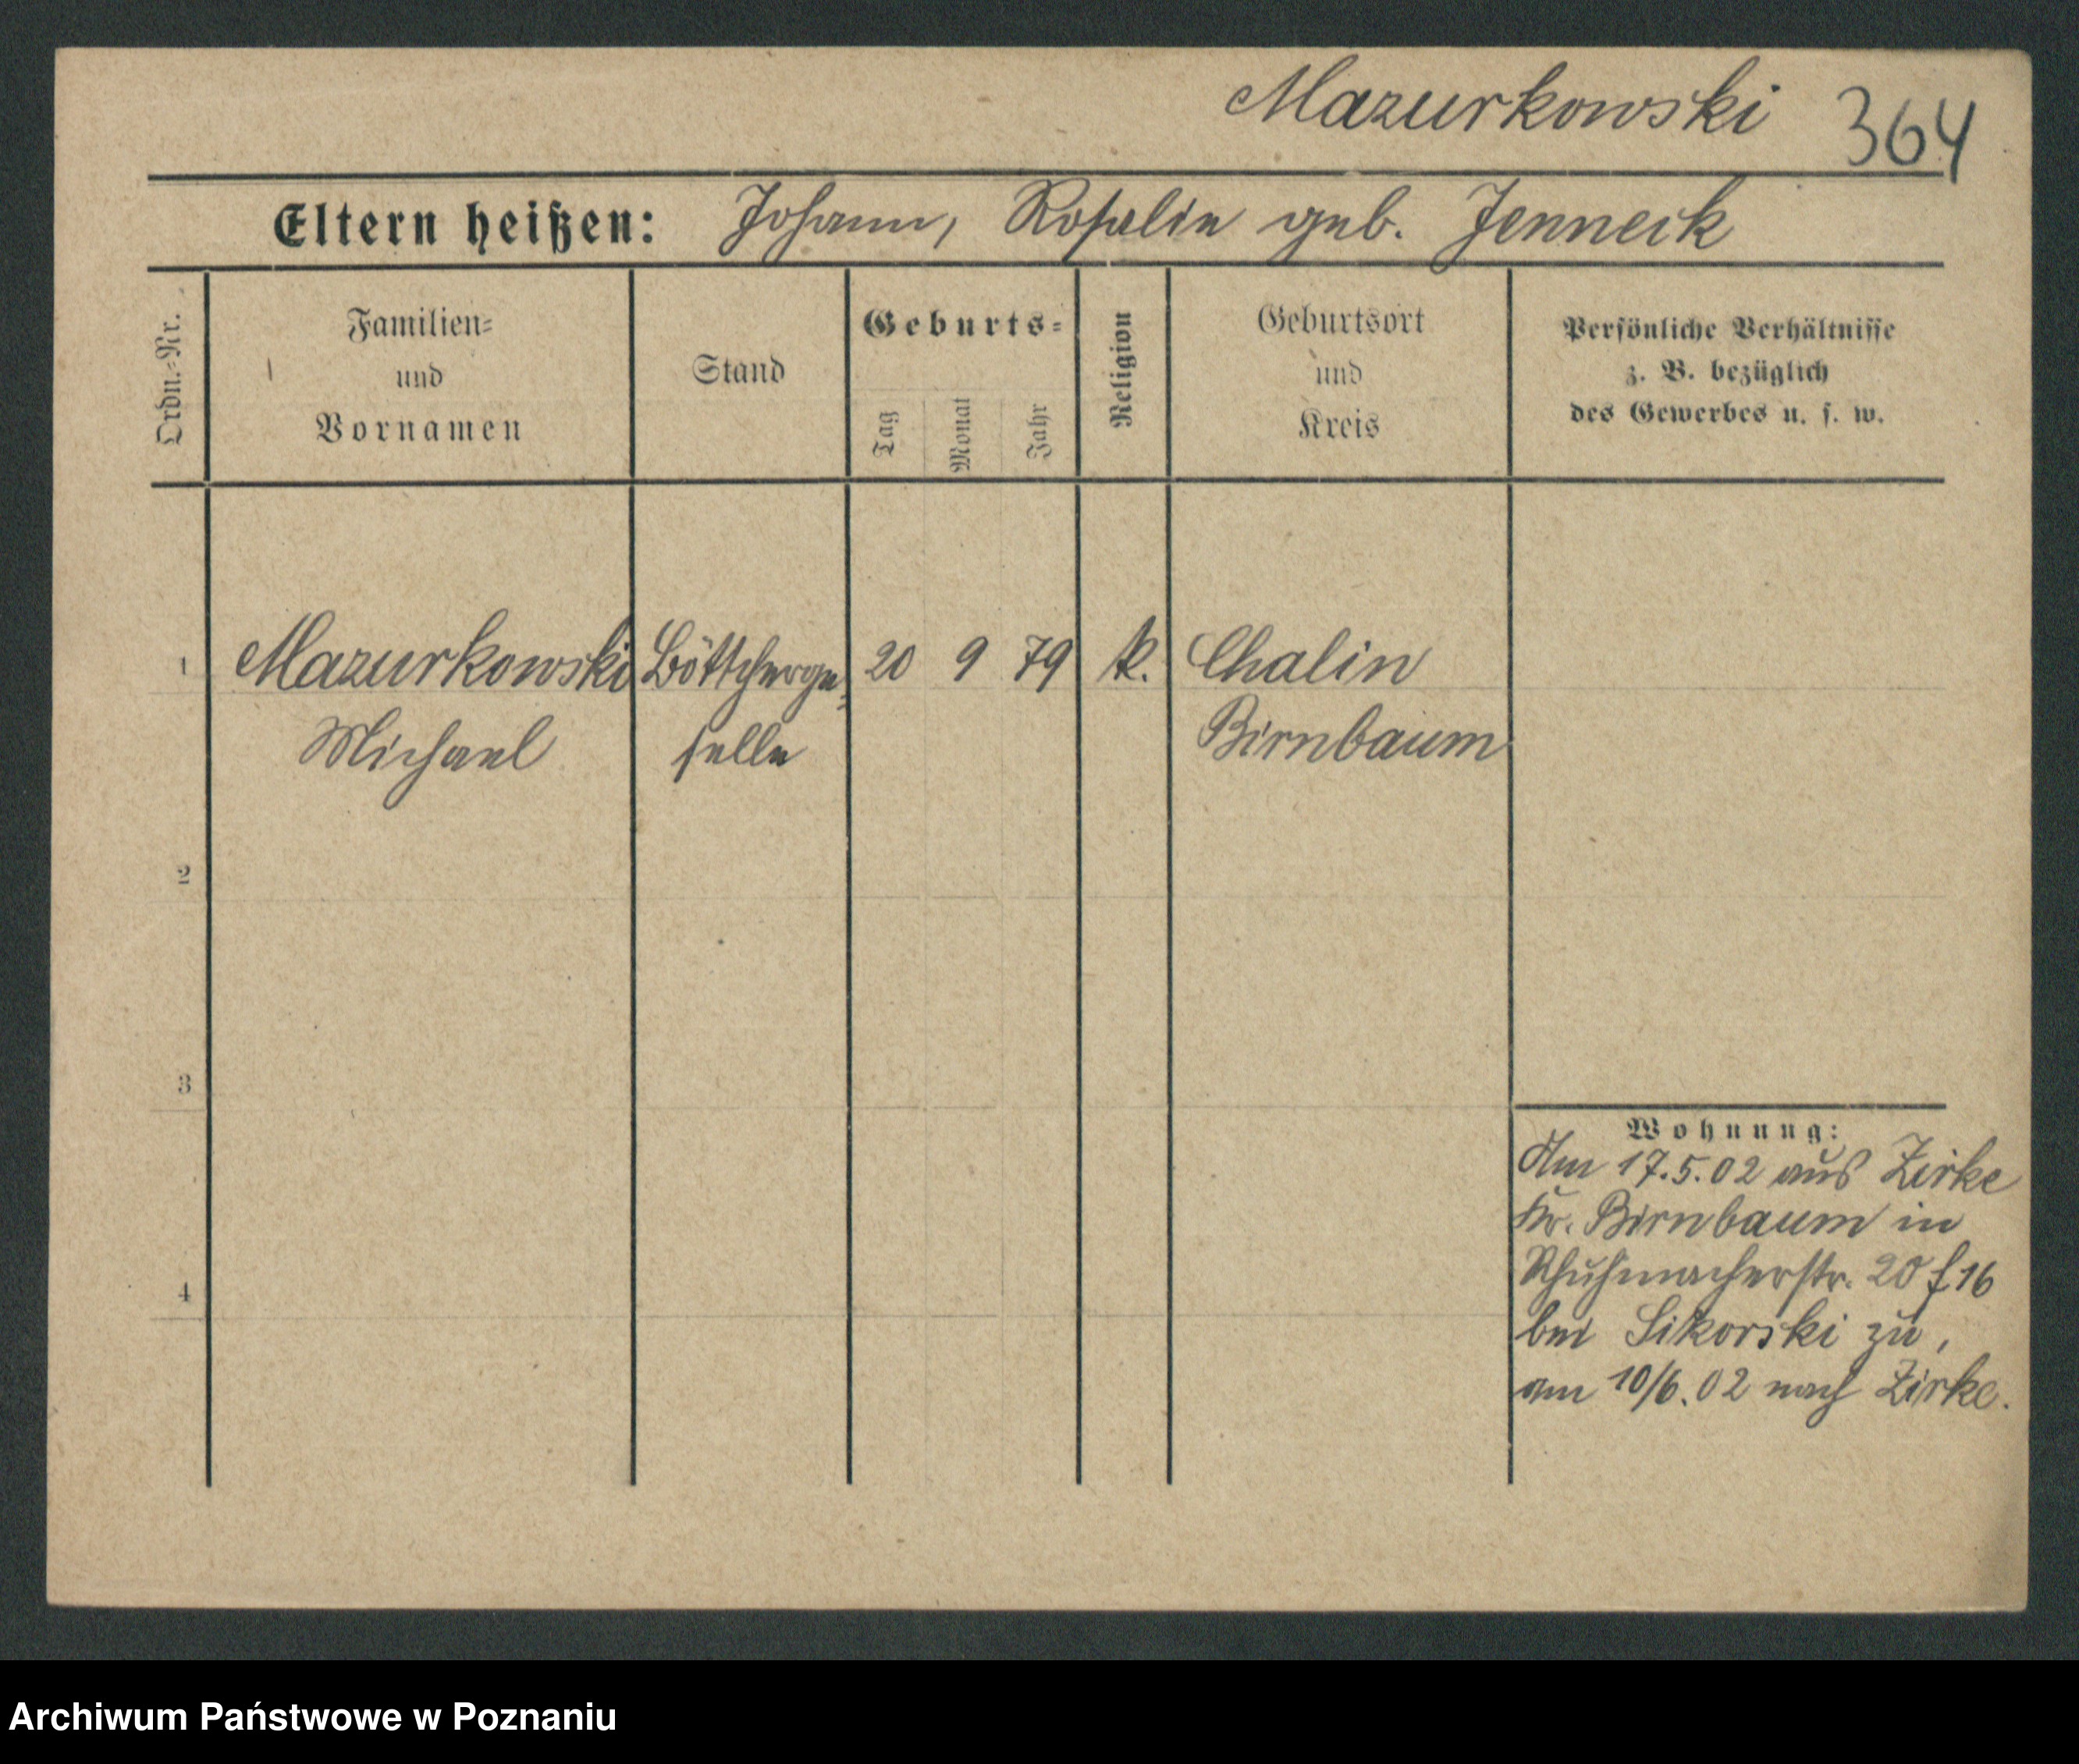 Mazurkowski 364
Eltern heißen: Johann, Rosalie geb. Jenneck
Ordn.-Nr.
Familien-
und
Vornamen
Stand
Geburts-
Tag
Monat
Jahr
Religion
Geburtsort
und
Kreis
Persönliche Verhältnisse
z. B. bezüglich
des Gewerbes u. s. w.
1 Mazurkowski Böttcherge- 20 9 79 k. Chalin
Michael selle Birnbaum
2
3
4
Wohnung:
Am 17.5.02 aus Zirke
Kr. Birnbaum in
Schuhmacherstr. 20 f 16
bei Sikorski zu,
am 10/6.02 nach Zirke.
Archiwum Państwowe w Poznaniu